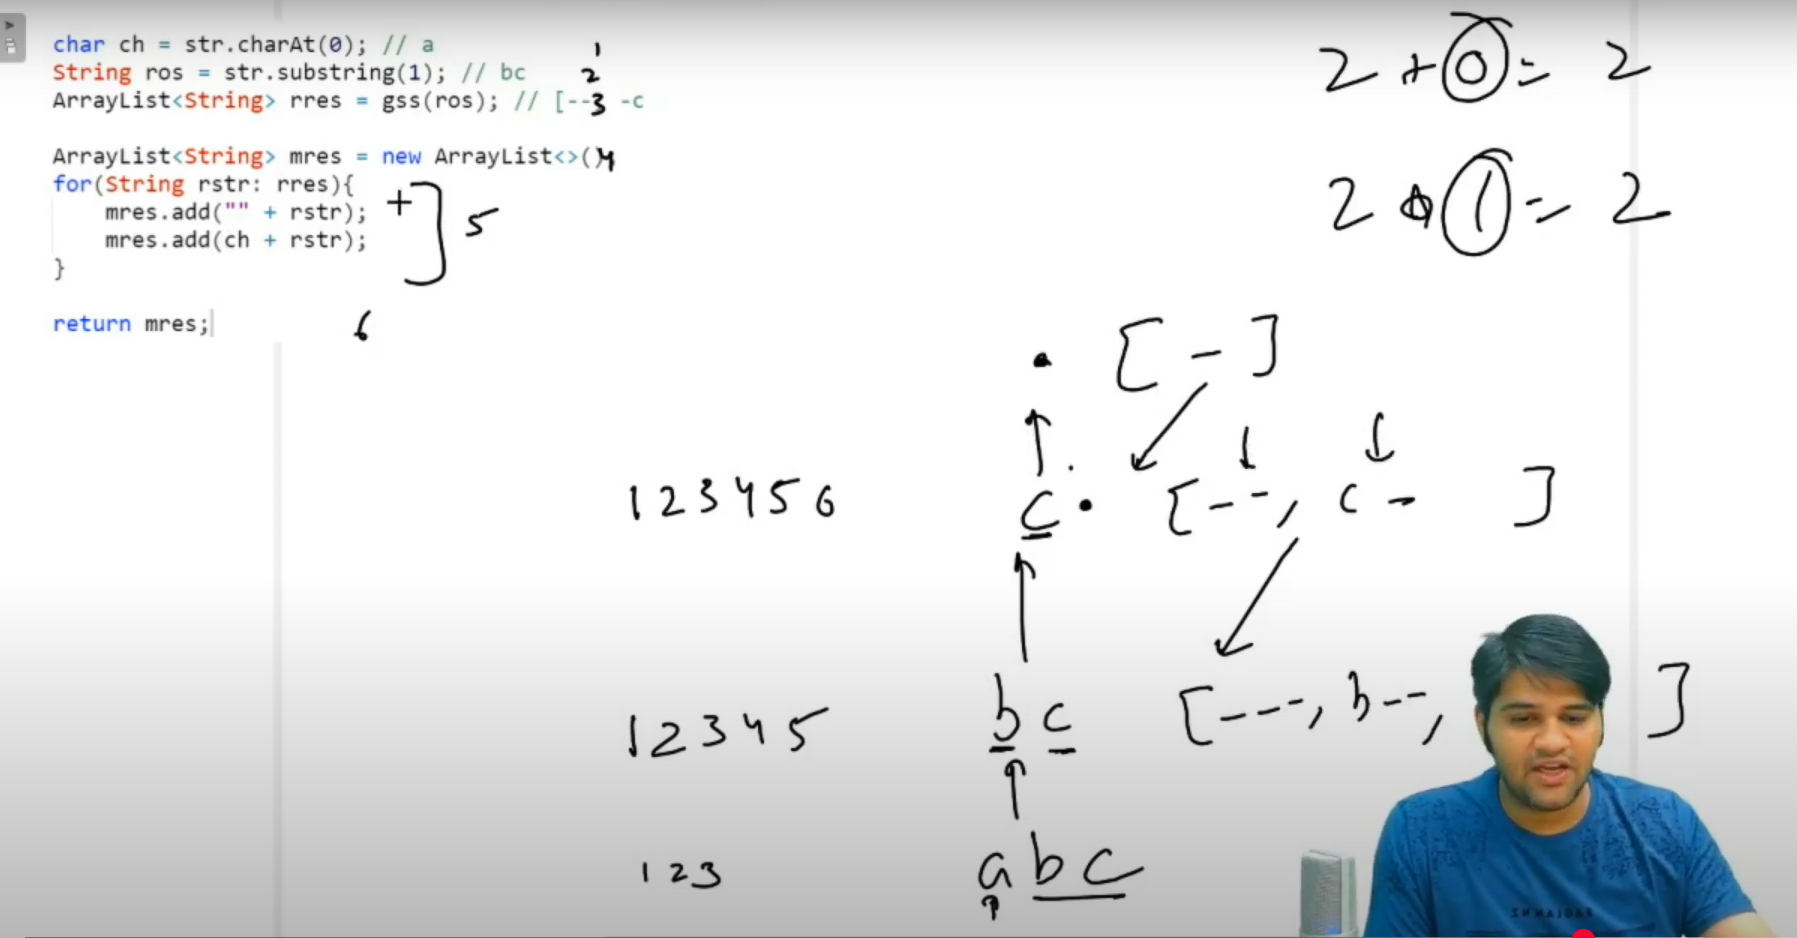 char ch = str.charAt(0); // a 1
String ros = str.substring(1); // bc 2
ArrayList<String> rres = gss(ros); // [--3 -c
ArrayList<String> mres = new ArrayList<>()4
for(String rstr: rres){
mres.add("" + rstr); +
mres.add(ch + rstr);
} ] 5
return mres; 6
2 + 0 = 2
2 * 1 = 2
. [ - ]
1 2 3 4 5 6 c . [ --, c- ]
1 2 3 4 5 b c [ ---, b--, ]
1 2 3 a b c